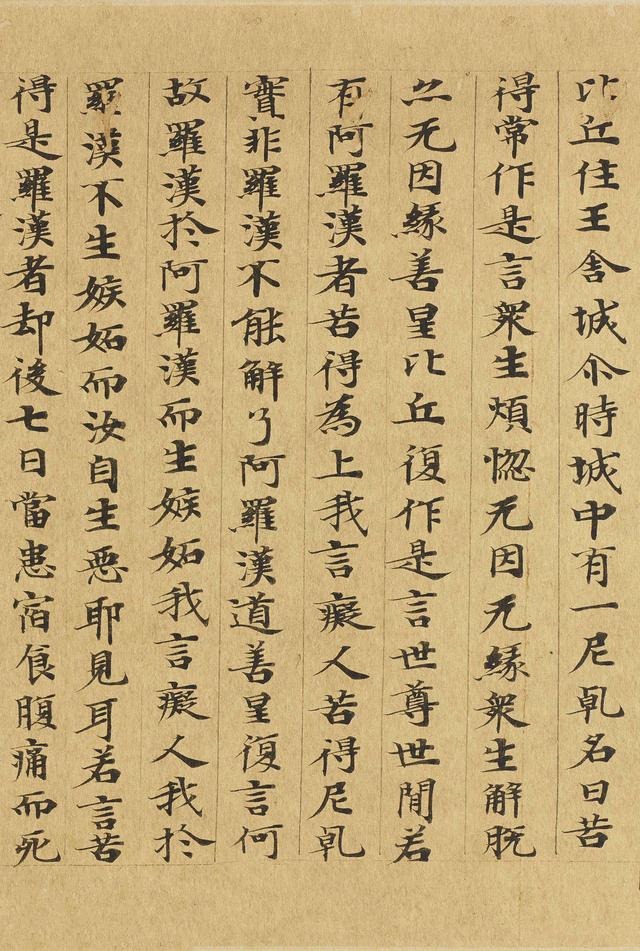 比丘住王舍城尒時城中有一尼乹名曰苦
得常作是言衆生煩惱无因无緣衆生解脱
亦无因緣善星比丘復作是言世尊世閒若
有阿羅漢者苦得為上我言癡人苦得尼乹
實非羅漢不能解了阿羅漢道善星復言何
故羅漢於阿羅漢而生嫉妬我言癡人我於
羅漢不生嫉妬而汝自生惡耶見耳若言苦
得是羅漢者却後七日當患宿食腹痛而死